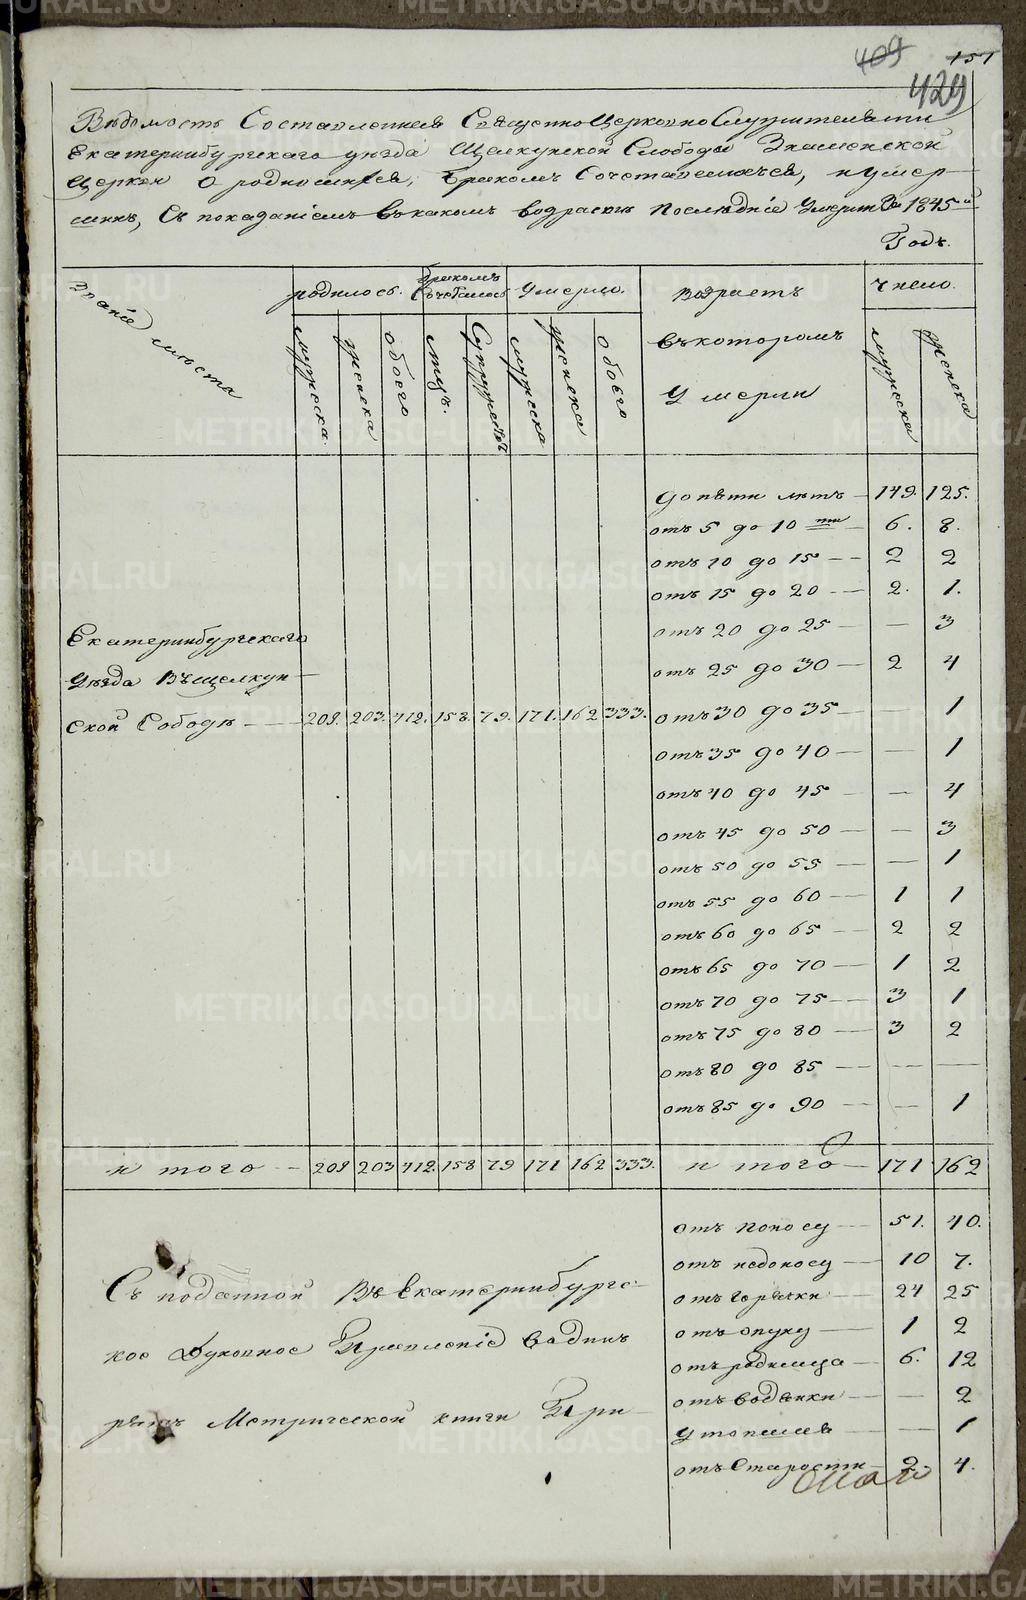 409 151
429
Ведомость Составленная СвященноЦерковноСлужителями
Екатеринбургскаго уезда Щелкунской Слободы Знаменской
Церкви о родившихся, браком Сочетавшихся, и умер-
шихъ, Съ показаніемъ въ какомъ возрасте последніе Умерли За 1845й
Годъ.
Званіе места
родилось.
Бракомъ Сочеталось
Умерло.
Возрастъ
въ которомъ
Умерли
Число.
мужеска
женска
обоего
лицъ.
Супружествъ
мужеска
женска
обоего
мужеска
женска
до пяти летъ — 149. 125.
отъ 5 до 10 ти — 6. 8.
отъ 10 до 15 — 2 2
отъ 15 до 20 — 2. 1.
Екатеринбургскаго
отъ 20 до 25 — — 3
Уезда Въ Щелкун-
отъ 25 до 30 — 2 4
ской Сободе — 209. 203. 412. 158. 79. 171. 162 333.
отъ 30 до 35 — 1
отъ 35 до 40 — — 1
отъ 40 до 45 — 4
отъ 45 до 50 — — 3
отъ 50 до 55 — — 1
отъ 55 до 60 — 1 1
отъ 60 до 65 — 2 2
отъ 65 до 70 — 1 2
отъ 70 до 75 — 3 1
отъ 75 до 80 — 3 2
отъ 80 до 85 — — —
отъ 85 до 90 — — 1
и того — 209 203 412 158 79 171 162 333. и того — 171 162
отъ поносу — 51. 40.
отъ недоносу — 10 7.
Съ поданной Въ Екатеринбургс-
отъ горячки — 24 25
кое Духовное Правленіе Въ одинъ
отъ опуху — 1 2
отъ родимца — 6. 12
отъ водянки — — 2
рядъ Метрической книги При-
Утопшая — — 1
отъ Старости 2. 4.